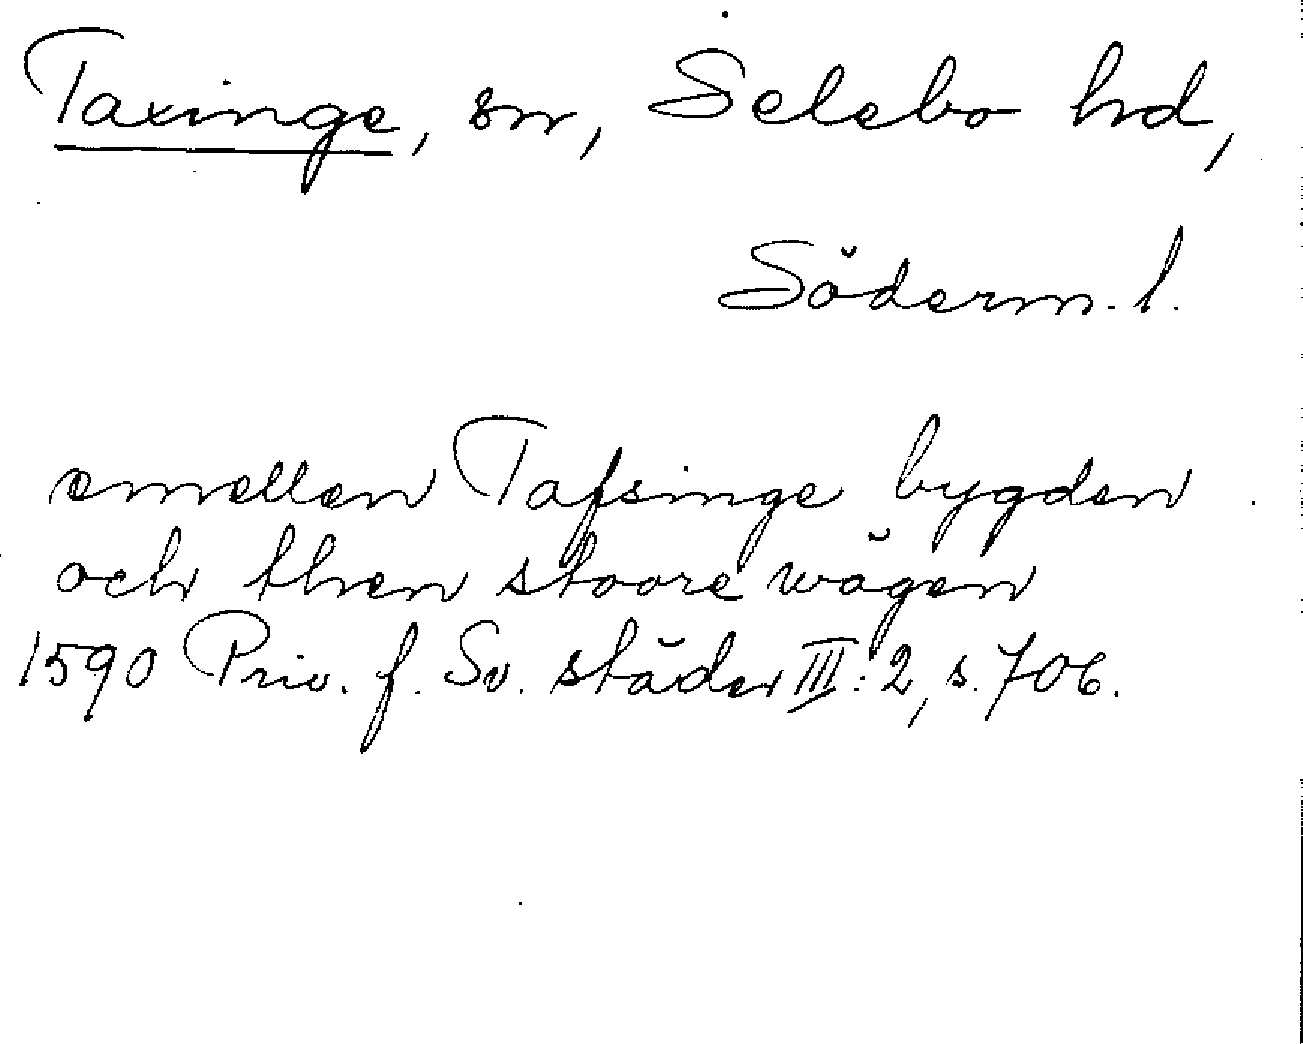 Taxinge, sn, Selebo hd,
Söderm. l.
emellen Tafsinge bygden
och then stoore wägen
1590 Priv. f. Sv. städer III: 2, s. 706.